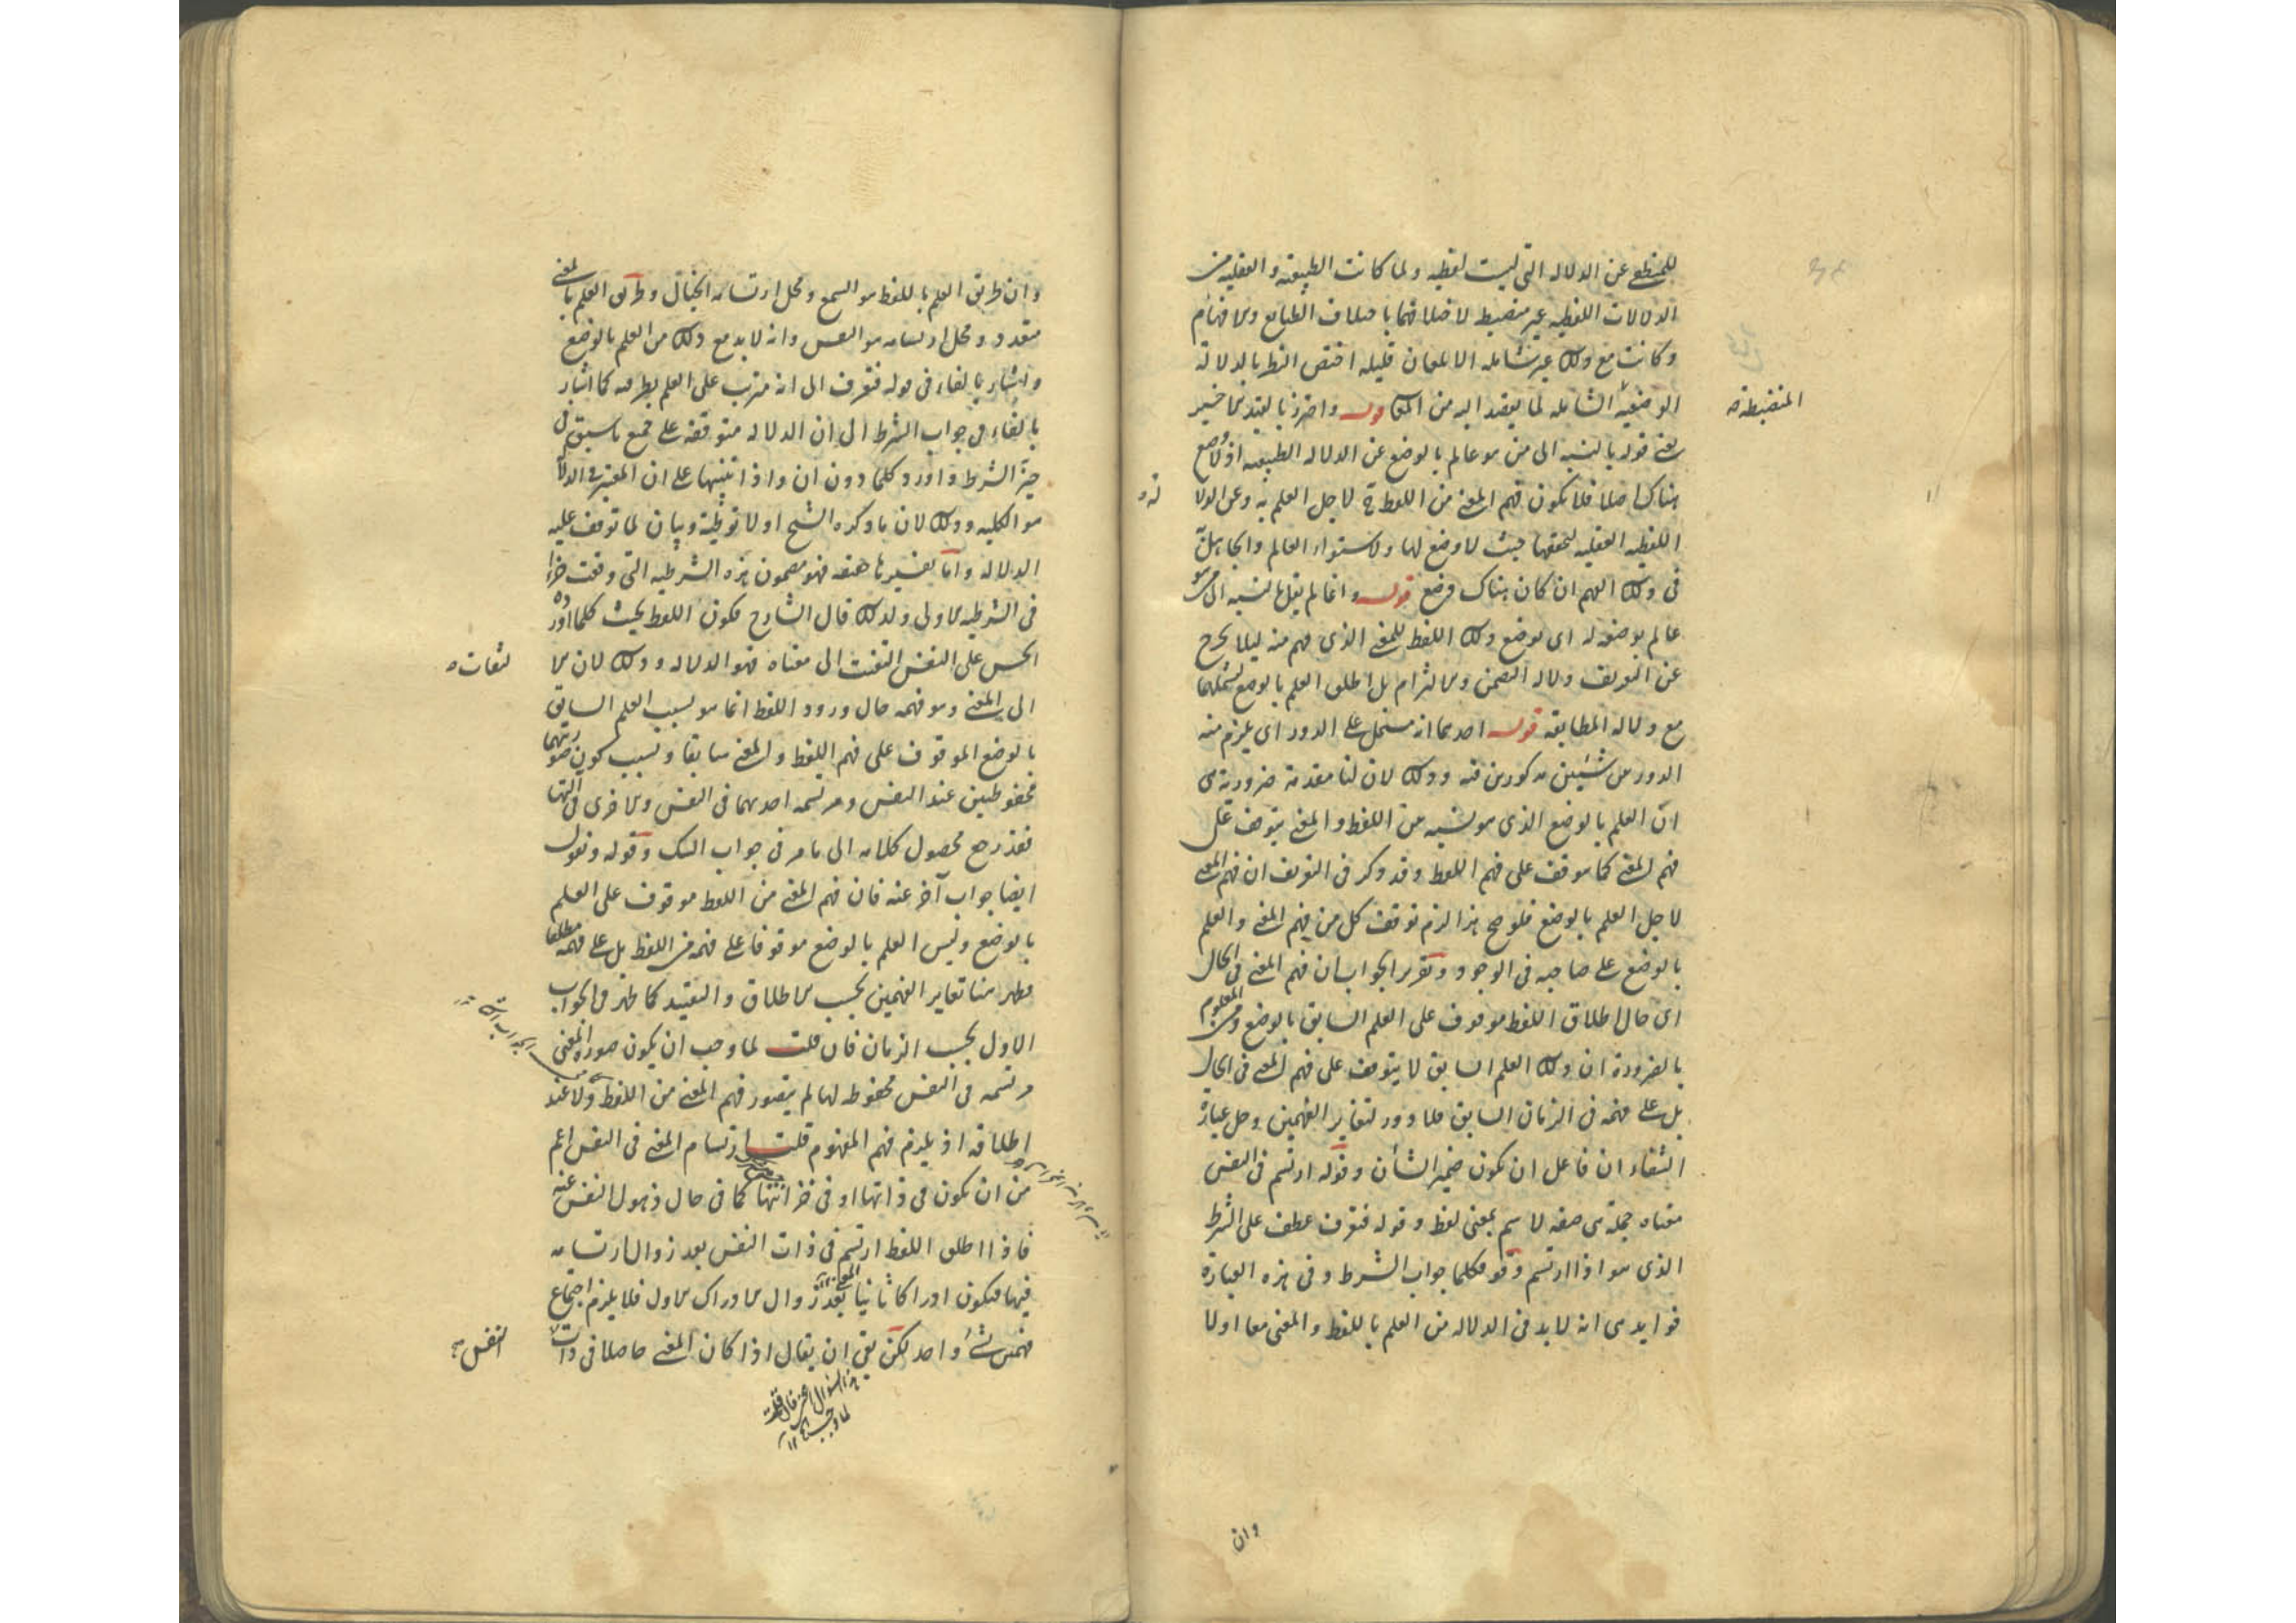 للمنطق عن الدلاله التى ليست لفظيه ولما كانت الطبيعيه والعقليه من
الدلالات اللفظيه غير منضبط لاختلافهما باختلاف الطبايع والافهام
وكانت مع ذلك غير شامله الا لمعان قليله اختص النظر بالدلالة
الوضعيه الشامله لما يقصد اليه من المعانى قوله واحترز بالقيد الاخير
المنضبطة
يعنى قوله بالنسبه الى من هو عالم بالوضع عن الدلاله الطبيعيه اذ لا وضع
هناك اصلا فلا يكون فهم المعنى من اللفظ لاجل العلم به وعن الدلا
لة
اللفظيه العقليه لتحققها حيث لا وضع لها ولاستواء العالم والجاهل
فى ذلك الفهم ان كان هناك وضع قوله وانما لم يقل بالنسبه الى من هو
عالم بوضعه له اى بوضع ذلك اللفظ للمعنى الذى فهم منه ليلا يخرج
عن التعريف دلاله التضمن والالتزام بل اطلق العلم بالوضع ليشملهما
مع دلاله المطابقه قوله احدهما انه مشتمل على الدور اى يلزم منه
الدور من شيئين مذكورين فيه وذلك لان لنا مقدمة ضرورية هى
ان العلم بالوضع الذى هو نسبه من اللفظ والمعنى يتوقف على
فهم المعنى كما يتوقف على فهم اللفظ وقد ذكر فى التعريف ان فهم المعنى
لاجل العلم بالوضع فلو صح هذا لزم توقف كل من فهم المعنى والعلم
بالوضع على صاحبه فى الوجود وتقرير الجواب ان فهم المعنى فى الحال
اى حال اطلاق اللفظ موقوف على العلم السابق بالوضع ومن المعلوم
بالضرورة ان ذلك العلم السابق لا يتوقف على فهم المعنى فى الحال
بل على فهمه فى الزمان السابق فلا دور لتغاير الفهمين وحل عبارة
الشفاء ان فاعل ان يكون ضمير الشأن وقوله ارتسم فى النفس
معناه جملة هى صفه لاسم بمعنى لفظ وقوله فتعرف عطف على الشرط
الذى هو اذا ارتسم وقوله فكلما جواب الشرط وفى هذه العبارة
فوايد هى انه لا بد فى الدلاله من العلم باللفظ والمعنى معا اولا
وان
وان طريق العلم باللفظ هو السمع ومحل ارتسامه الخيال وطريق العلم بالمعنى
متعدد ومحل ارتسامه هو النفس وانه لا بد مع ذلك من العلم بالوضع
واشار بالفاء فى قوله فتعرف الى انه مترتب على العلم بطرفيه كما اشار
بالفاء فى جواب الشرط الى ان الدلاله متوقفه على جميع ما سبق فى
حيز الشرط واورد كلما دون ان واذا تنبيها على ان المعتبر فى الدلا
هو الكليه وذلك لان ما ذكره الشيخ اولا توطية وبيان لما توقف عليه
الدلاله واما تفسيرها حقيقه فهو مضمون هذه الشرطيه التى وقعت جزا
فى الشرطيه الاولى ولذلك قال الشارح فكون اللفظ بحيث كلما اورده
الحس على النفس التفتت الى معناه فهو الدلاله وذلك لان الا
لتفات
الى المعنى وهو فهمه حال ورود اللفظ انما هو بسبب العلم السابق
بالوضع الموقوف على فهم اللفظ والمعنى سابقا وبسبب كون صورتهما
محفوظتين عند النفس ومرتسمه احديهما فى النفس والاخرى فى التها
فقد رجع محصول كلامه الى ما مر فى جواب الشك وقوله ونقول
ايضا جواب آخر عنه فان فهم المعنى من اللفظ موقوف على العلم
بالوضع وليس العلم بالوضع موقوفا على فهمه من اللفظ بل على فهمه مطلقا
فظهر هنا تغاير الفهمين بحسب الاطلاق والتقييد كما ظهر فى الجواب
الاول بحسب الزمان فان قلت لما وجب ان يكون صورة المعنى
مرتسمه فى النفس محفوظه لها لم يتصور فهم المعنى من اللفظ ولا عند
اطلاقه اذ يلزم فهم المفهوم قلت ارتسام المعنى فى النفس اعم
من ان يكون فى ذاتها او فى خزانتها كما فى حال ذهول النفس عنه
فاذا اطلق اللفظ ارتسم فى ذات النفس بعد زوال ارتسامه
فيها فيكون ادراكا ثانيا بعد زوال الادراك الاول فلا يلزم اجتماع
فهمى شئ واحد لكن بقى ان يقال اذا كان المعنى حاصلا فى ذات
النفس